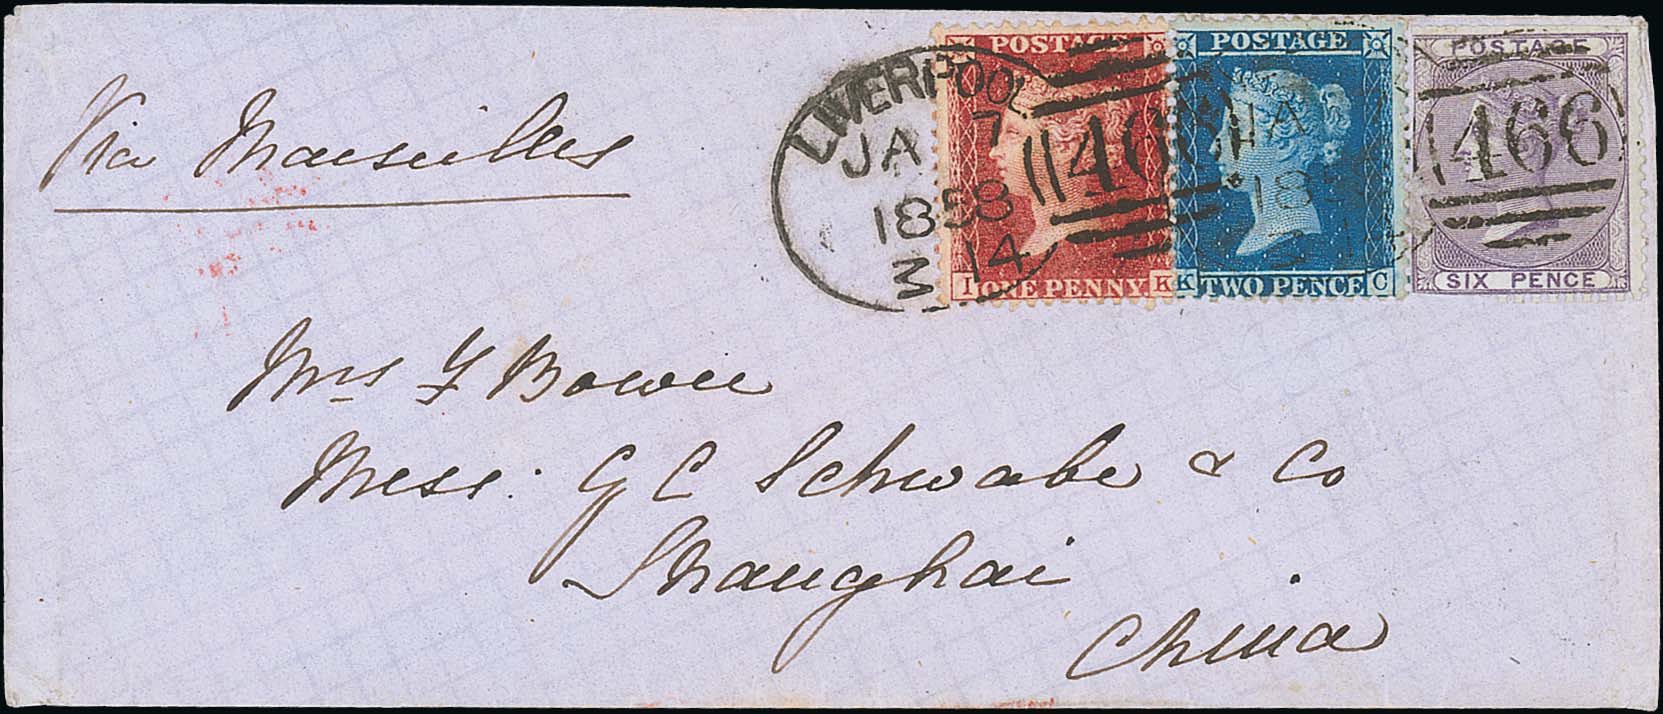 Via Marseilles
LIVERPOOL
JA 7
1858
3 14
POSTAGE
466
I ONE PENNY K
POSTAGE
JA
K TWO PENCE C
POSTAGE
466
SIX PENCE
Mrs F Bowen
Mess: G C Schwabe & Co
Shanghai
China